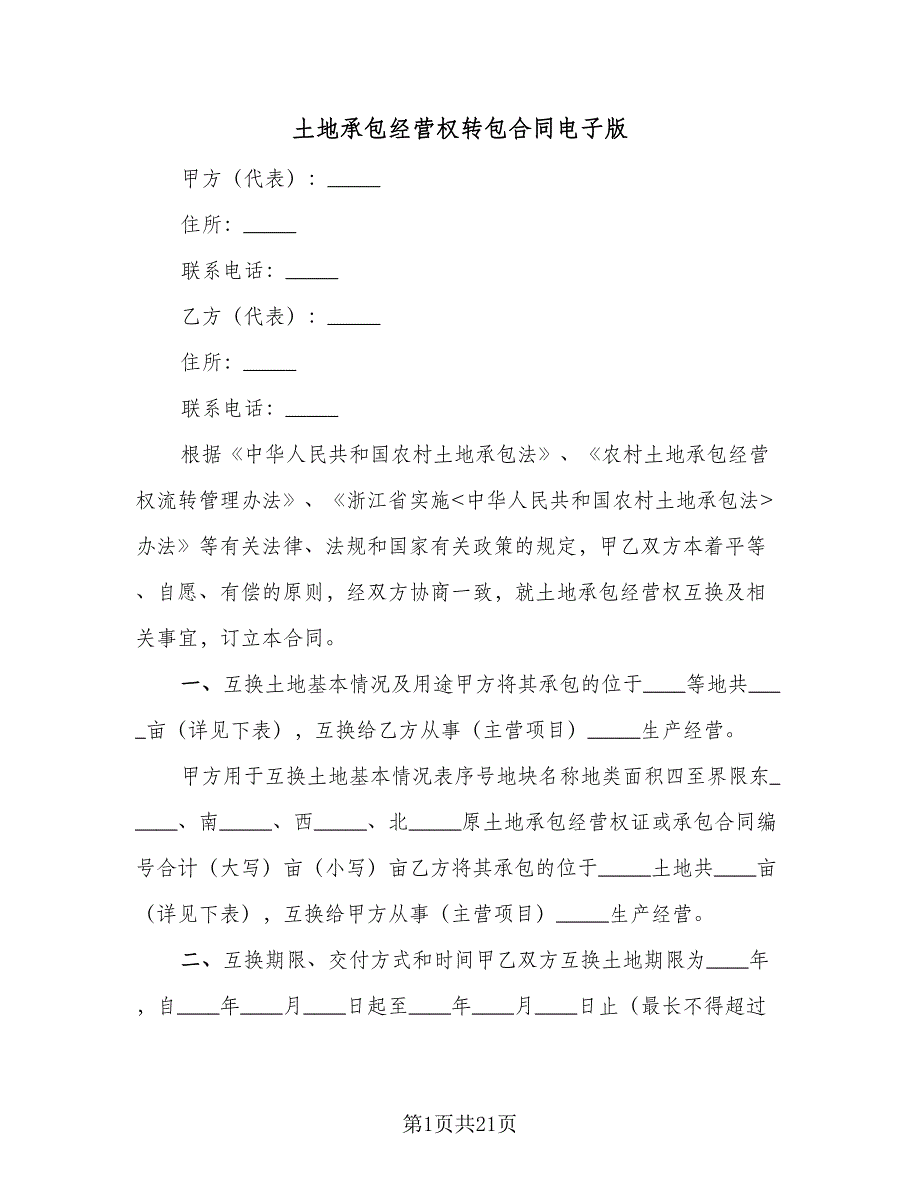 土地承包经营权转包合同电子版
甲方（代表）：_____
住所：_____
联系电话：_____
乙方（代表）：_____
住所：_____
联系电话：_____
根据《中华人民共和国农村土地承包法》、《农村土地承包经营
权流转管理办法》、《浙江省实施<中华人民共和国农村土地承包法>
办法》等有关法律、法规和国家有关政策的规定，甲乙双方本着平等
、自愿、有偿的原则，经双方协商一致，就土地承包经营权互换及相
关事宜，订立本合同。
一、互换土地基本情况及用途甲方将其承包的位于____等地共___
_亩（详见下表），互换给乙方从事（主营项目）_____生产经营。
甲方用于互换土地基本情况表序号地块名称地类面积四至界限东_
____、南_____、西_____、北_____原土地承包经营权证或承包合同编
号合计（大写）亩（小写）亩乙方将其承包的位于_____土地共____亩
（详见下表），互换给甲方从事（主营项目）_____生产经营。
二、互换期限、交付方式和时间甲乙双方互换土地期限为____年
，自____年____月____日起至____年____月____日止（最长不得超过
第1页共21页